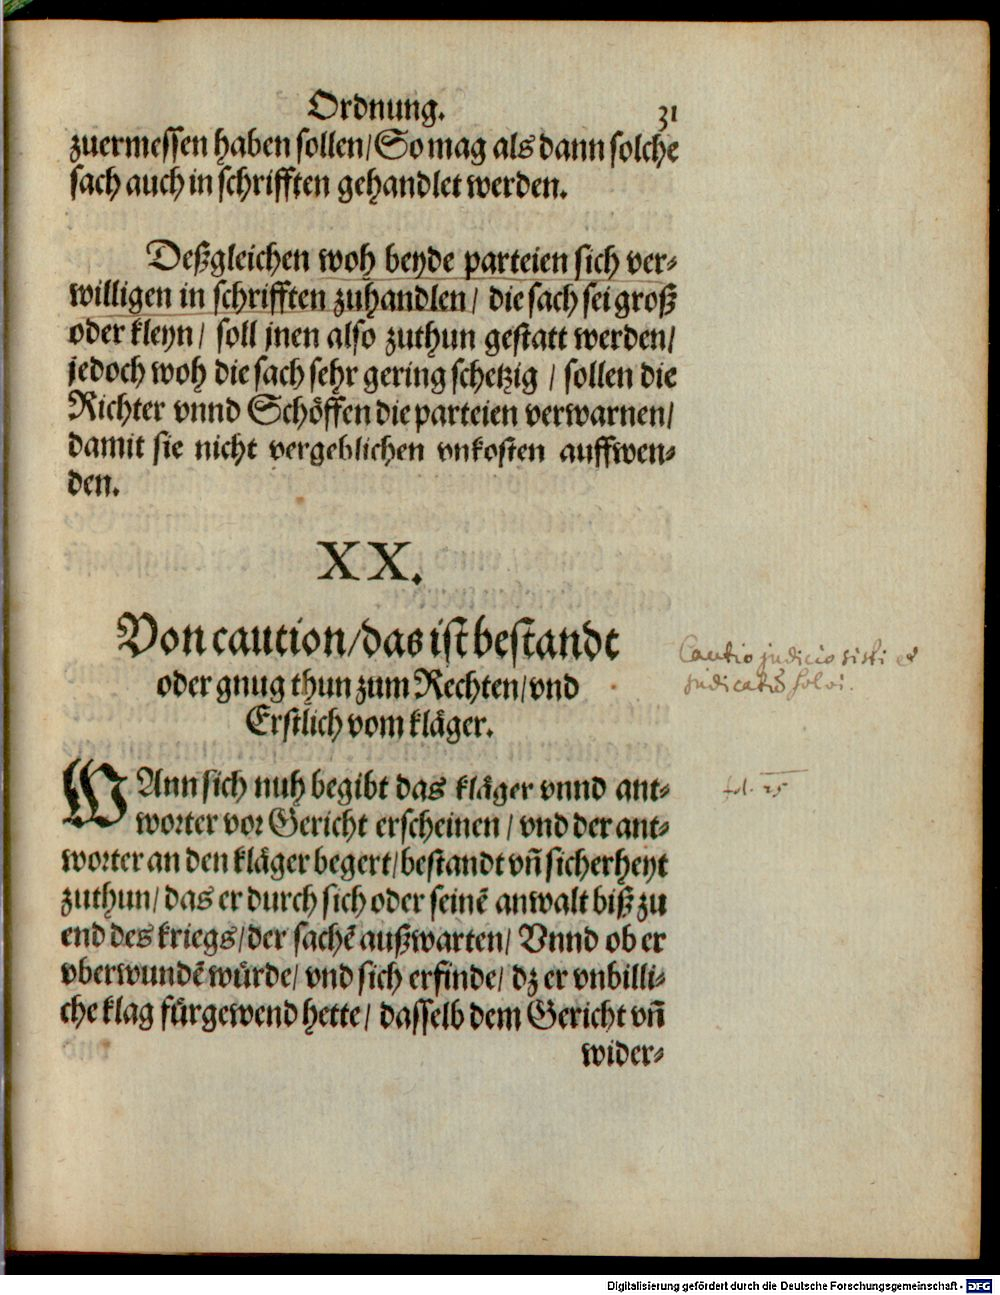 Ordnung. 31
zuermessen haben sollen/ So mag als dann solche
sach auch in schrifften gehandlet werden.
Deßgleichen woh beyde parteien sich ver-
willigen in schrifften zuhandlen/ die sach sei groß
oder kleyn/ soll jnen also zuthun gestatt werden/
jedoch woh die sach sehr gering schetzig / sollen die
Richter vnnd Schöffen die parteien verwarnen/
damit sie nicht vergeblichen vnkosten auffwen-
den.
XX.
Von caution/das ist bestandt
oder gnug thun zum Rechten/vnd
Erstlich vom kläger.
Cautio judicio sisti et
judicatū solvi.
WAnn sich nuh begibt das kläger vnnd ant-
worter vor Gericht erscheinen / vnd der ant-
worter an den kläger begert/bestandt vñ sicherheyt
zuthun/ das er durch sich oder seinē anwalt biß zu
end des kriegs/der sachē außwarten/ Vnnd ob er
vberwundē würde/ vnd sich erfinde/ dz er vnbilli-
che klag fürgewend hette/ dasselb dem Gericht vñ
wider-
Digitalisierung gefördert durch die Deutsche Forschungsgemeinschaft - DFG